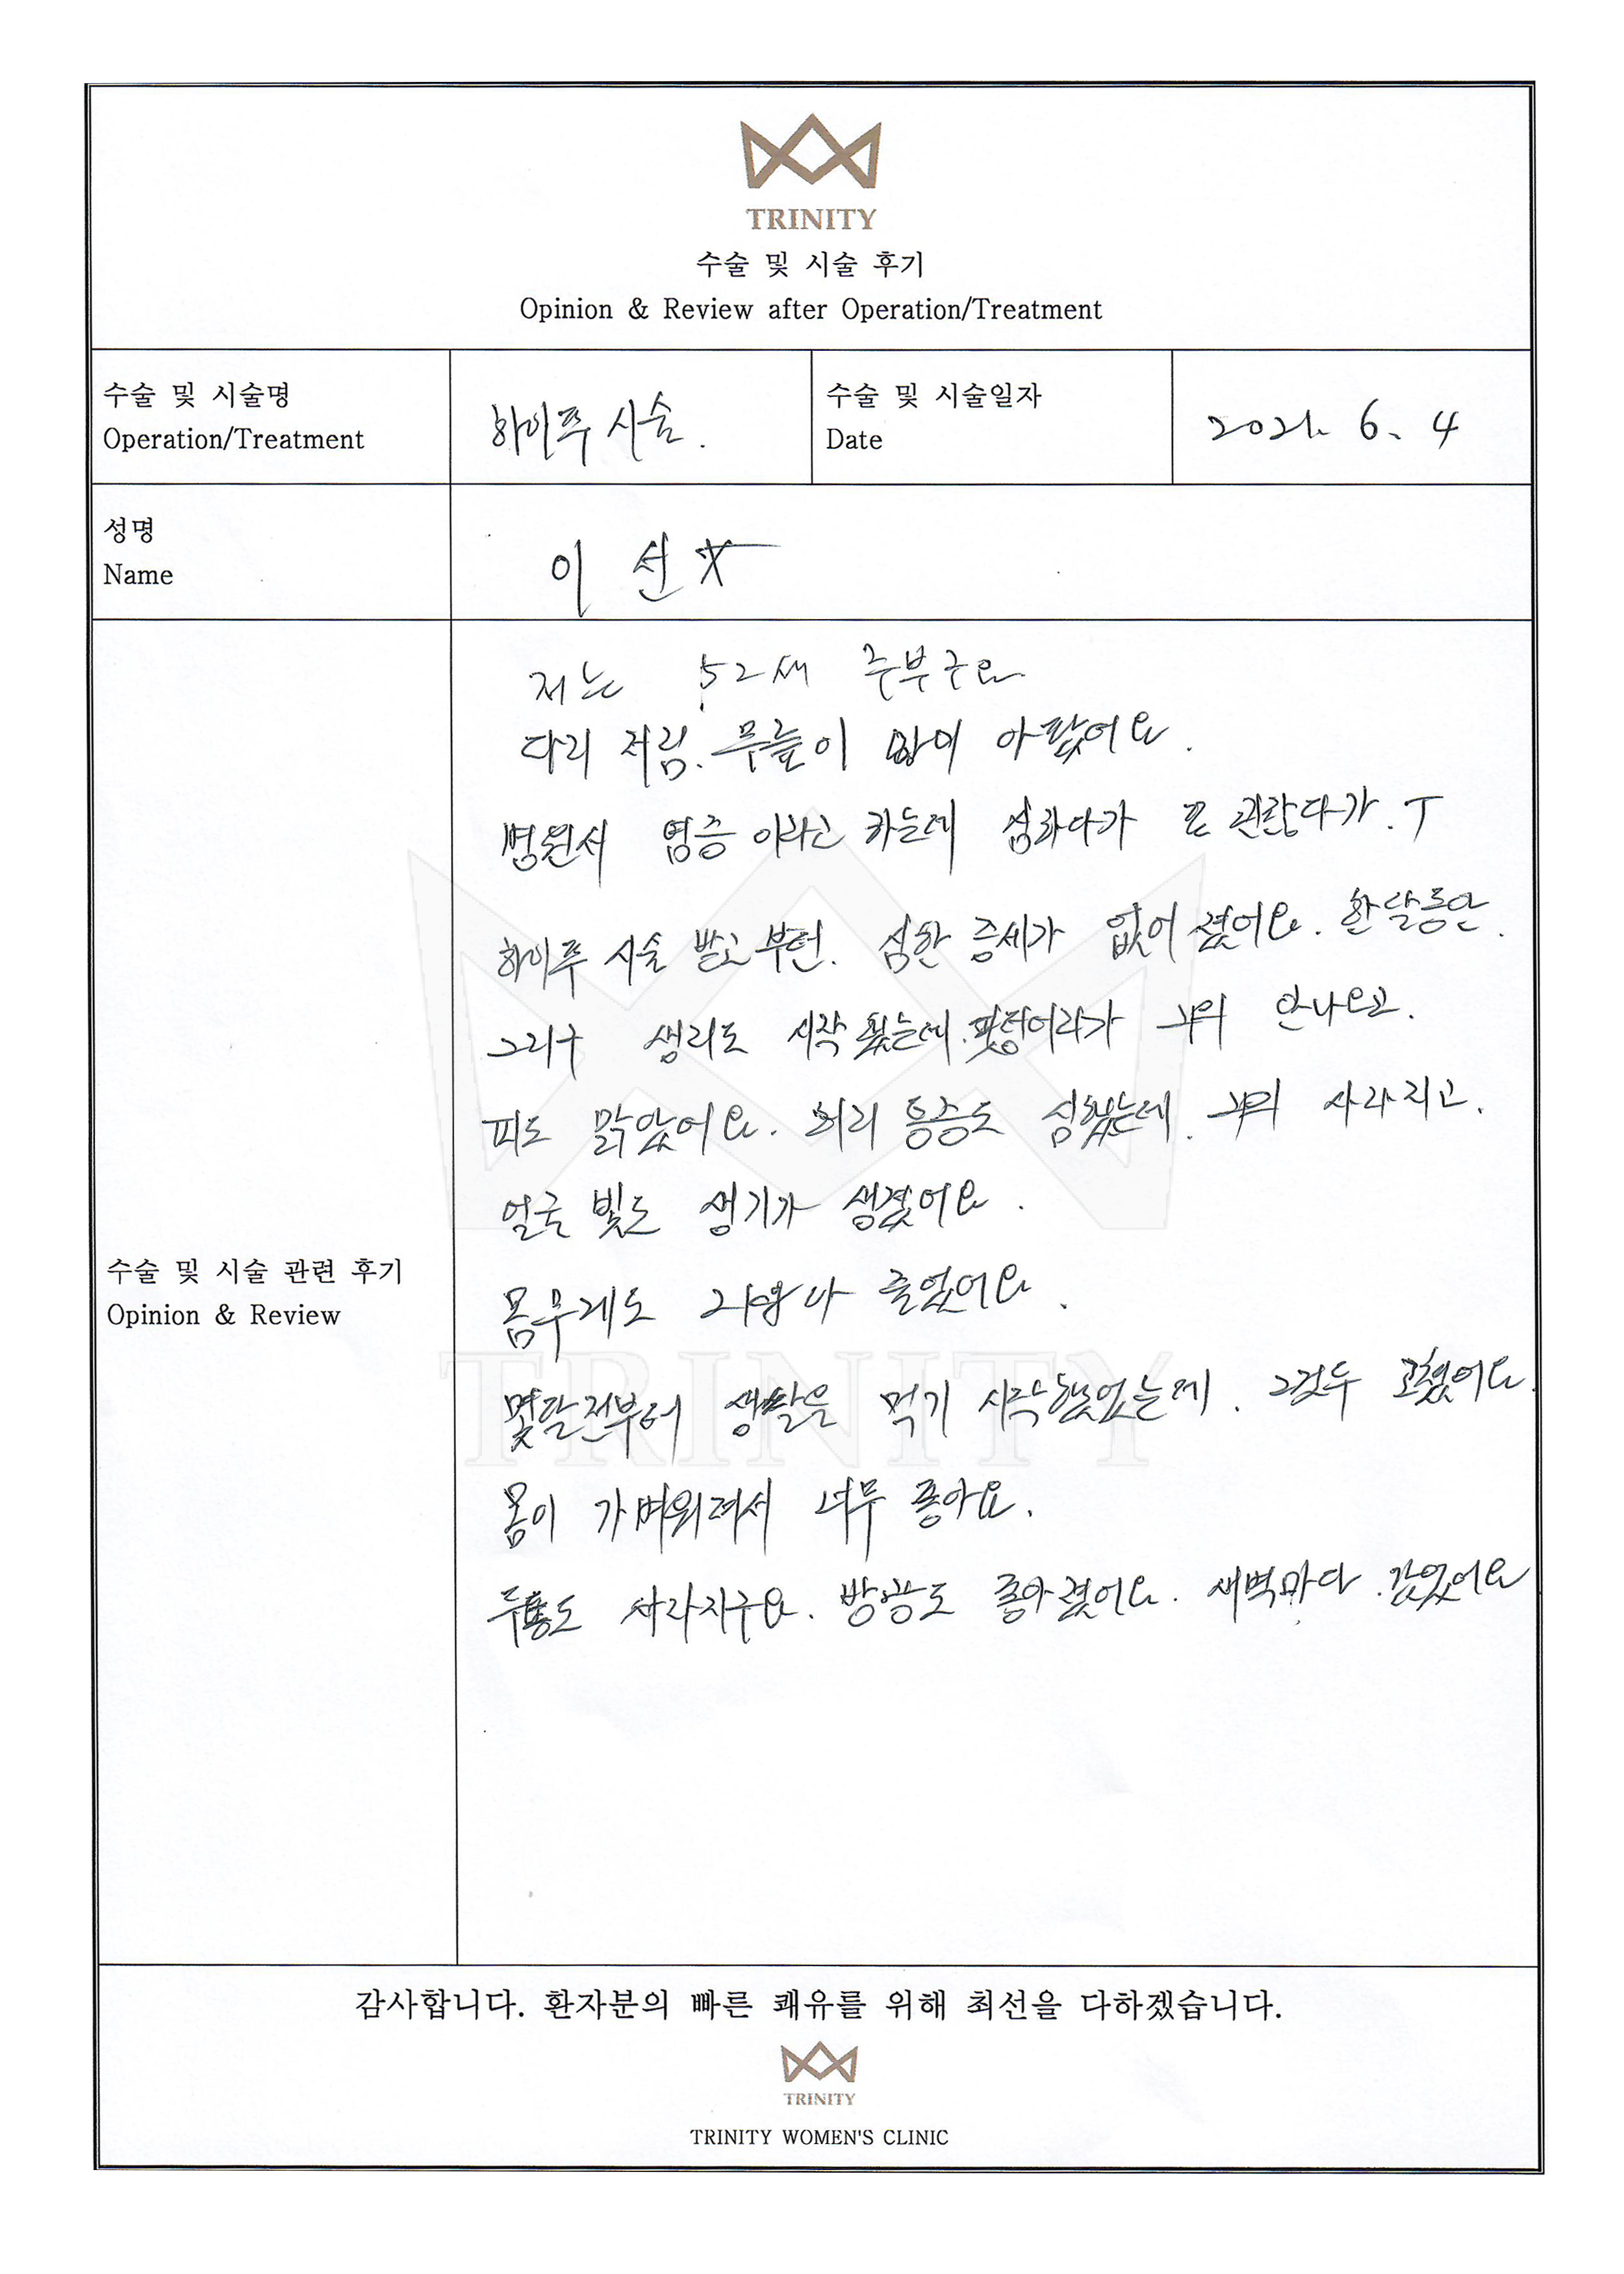 TRINITY
수술 및 시술 후기
Opinion & Review after Operation/Treatment
수술 및 시술명
Operation/Treatment
하이푸 시술.
수술 및 시술일자
Date
2021. 6. 4
성명
Name
이 선
수술 및 시술 관련 후기
Opinion & Review
저는 52세 주부구요
다리 저림. 무릎이 많이 아팠어요.
병원서 염증이라고 하는데 심하다가 또 괜찮다가.
하이푸 시술 받고부턴. 심한 증세가 없어졌어요. 한달동안.
그리구 생리도 시작 됬는데. 핏덩어리가 거의 안나오고.
피도 맑았어요. 허리 통증도 심했는데. 거의 사라지고.
얼굴 빛도 생기가 생겼어요.
몸무게도 나 줄었어요.
몇달전부터 생쌀을 먹기 시작했었는데. 그것두 고쳤어요.
몸이 가벼워져서 너무 좋아요.
두통도 사라지구요. 방광도 좋아졌어요. 새벽마다. 갔었어요
TRINITY
감사합니다. 환자분의 빠른 쾌유를 위해 최선을 다하겠습니다.
TRINITY
TRINITY WOMEN'S CLINIC